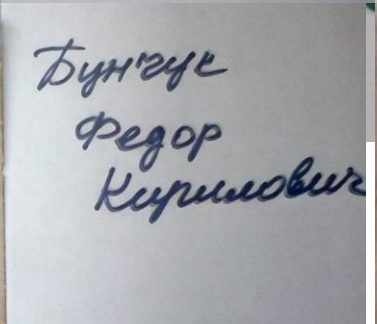 Бунчук
Федор
Кирилович